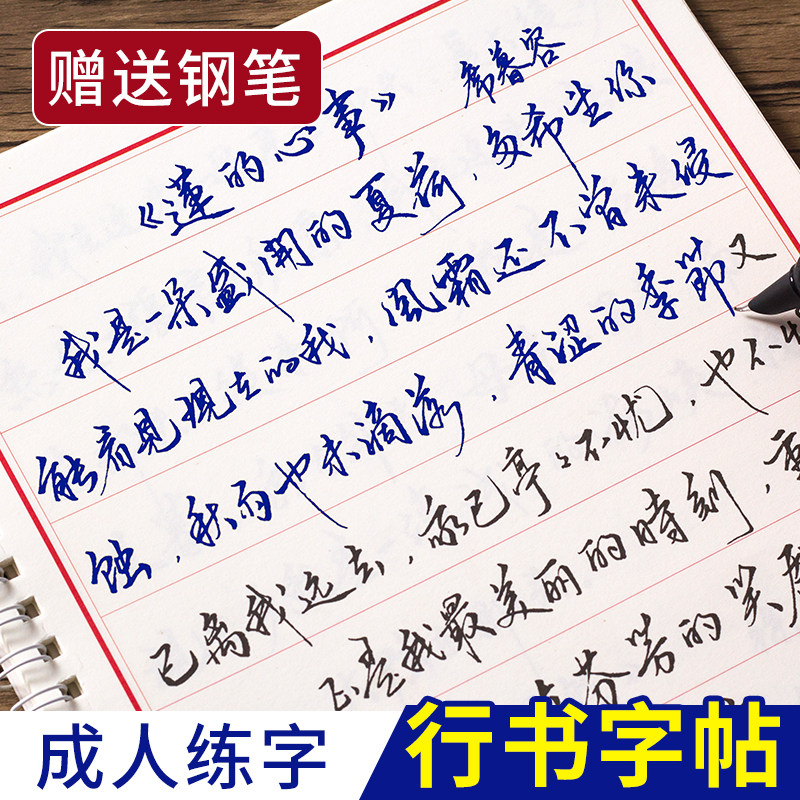 赠送钢笔
《蓮的心事》 席慕容
我是一朵盛開的夏荷，多希望你
能看見現在的我，風霜还不曾来侵
蚀，秋雨也未滴落，青涩的季節又
已离我远去，我已亭々不忧，也不
正是我最美丽的時刻，重
芬芳的笑
成人练字
行书字帖